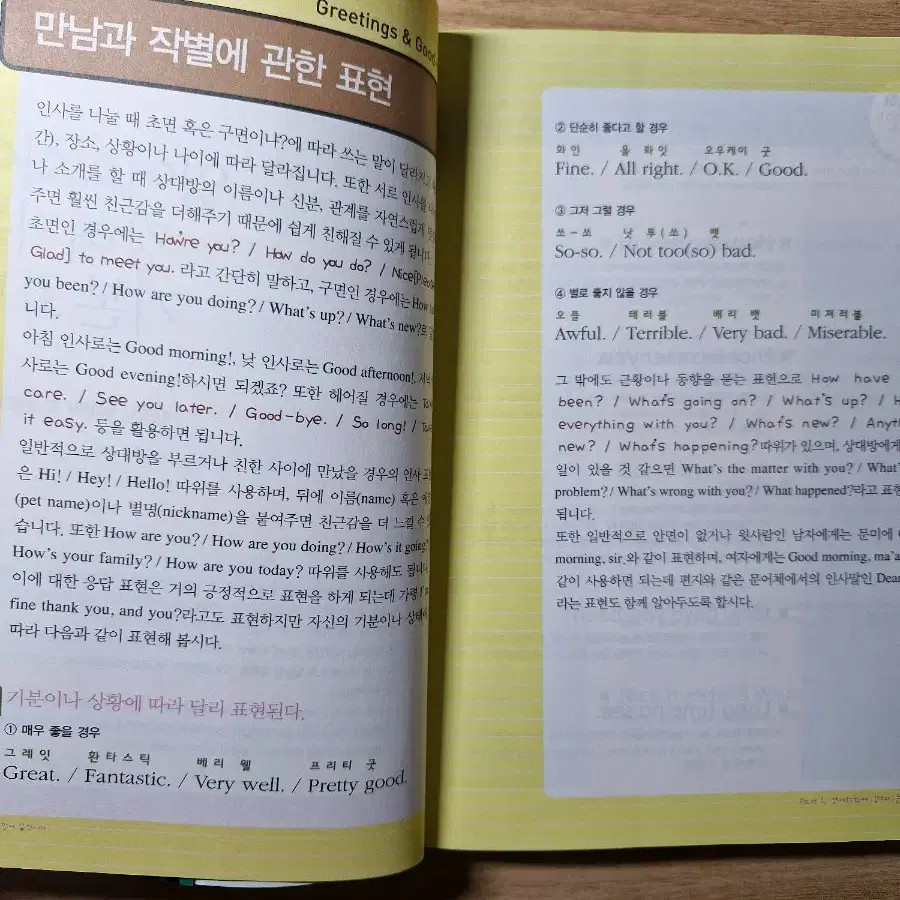 Greetings &
만남과 작별에 관한 표현
인사를 나눌 때 초면 혹은 구면이냐?에 따라 쓰는 말이
간), 장소, 상황이나 나이에 따라 달라집니다. 또한 서로 인사를
나 소개를 할 때 상대방의 이름이나 신분, 관계를 자연스럽게
주면 훨씬 친근감을 더해주기 때문에 쉽게 친해질 수 있게 됩니다.
초면인 경우에는 How're you? / How do you do? / Nice[
Glad] to meet you. 라고 간단히 말하고, 구면인 경우에는 How
you been? / How are you doing? / What's up? / What's new?로
니다.
아침 인사로는 Good morning!, 낮 인사로는 Good afternoon!, 저녁
사로는 Good evening!하시면 되겠죠? 또한 헤어질 경우에는
care. / See you later. / Good-bye. / So long! /
it easy. 등을 활용하면 됩니다.
일반적으로 상대방을 부르거나 친한 사이에 만났을 경우의 인사
은 Hi! / Hey! / Hello! 따위를 사용하며, 뒤에 이름(name) 혹은
(pet name)이나 별명(nickname)을 붙여주면 친근감을 더 느낄 수
습니다. 또한 How are you? / How are you doing? / How's it going?
How's your family? / How are you today? 따위를 사용해도
이에 대한 응답 표현은 거의 긍정적으로 표현을 하게 되는데 가령
fine thank you, and you?라고도 표현하지만 자신의 기분이나
따라 다음과 같이 표현해 봅시다.
기분이나 상황에 따라 달리 표현된다.
① 매우 좋을 경우
그레잇 환타스틱 베리 웰 프리티 굿
Great. / Fantastic. / Very well. / Pretty good.
② 단순히 좋다고 할 경우
화인 올 롸잇 오우케이 굿
Fine. / All right. / O.K. / Good.
③ 그저 그럴 경우
쏘-쏘 낫 투(쏘) 뱃
So-so. / Not too(so) bad.
④ 별로 좋지 않을 경우
오플 테러블 베리 뱃 미저러블
Awful. / Terrible. / Very bad. / Miserable.
그 밖에도 근황이나 동향을 묻는 표현으로 How have
been? / What's going on? / What's up? /
everything with you? / What's new? /
new? / What's happening? 따위가 있으며, 상대방에게
일이 있을 것 같으면 What's the matter with you? / What's
problem? / What's wrong with you? / What happened?라고
됩니다.
또한 일반적으로 안면이 없거나 윗사람인 남자에게는 문미에
morning, sir.와 같이 표현하며, 여자에게는 Good morning, ma'a
같이 사용하면 되는데 편지와 같은 문어체에서의 인사말인 Dear
라는 표현도 함께 알아두도록 합시다.
Part 1.